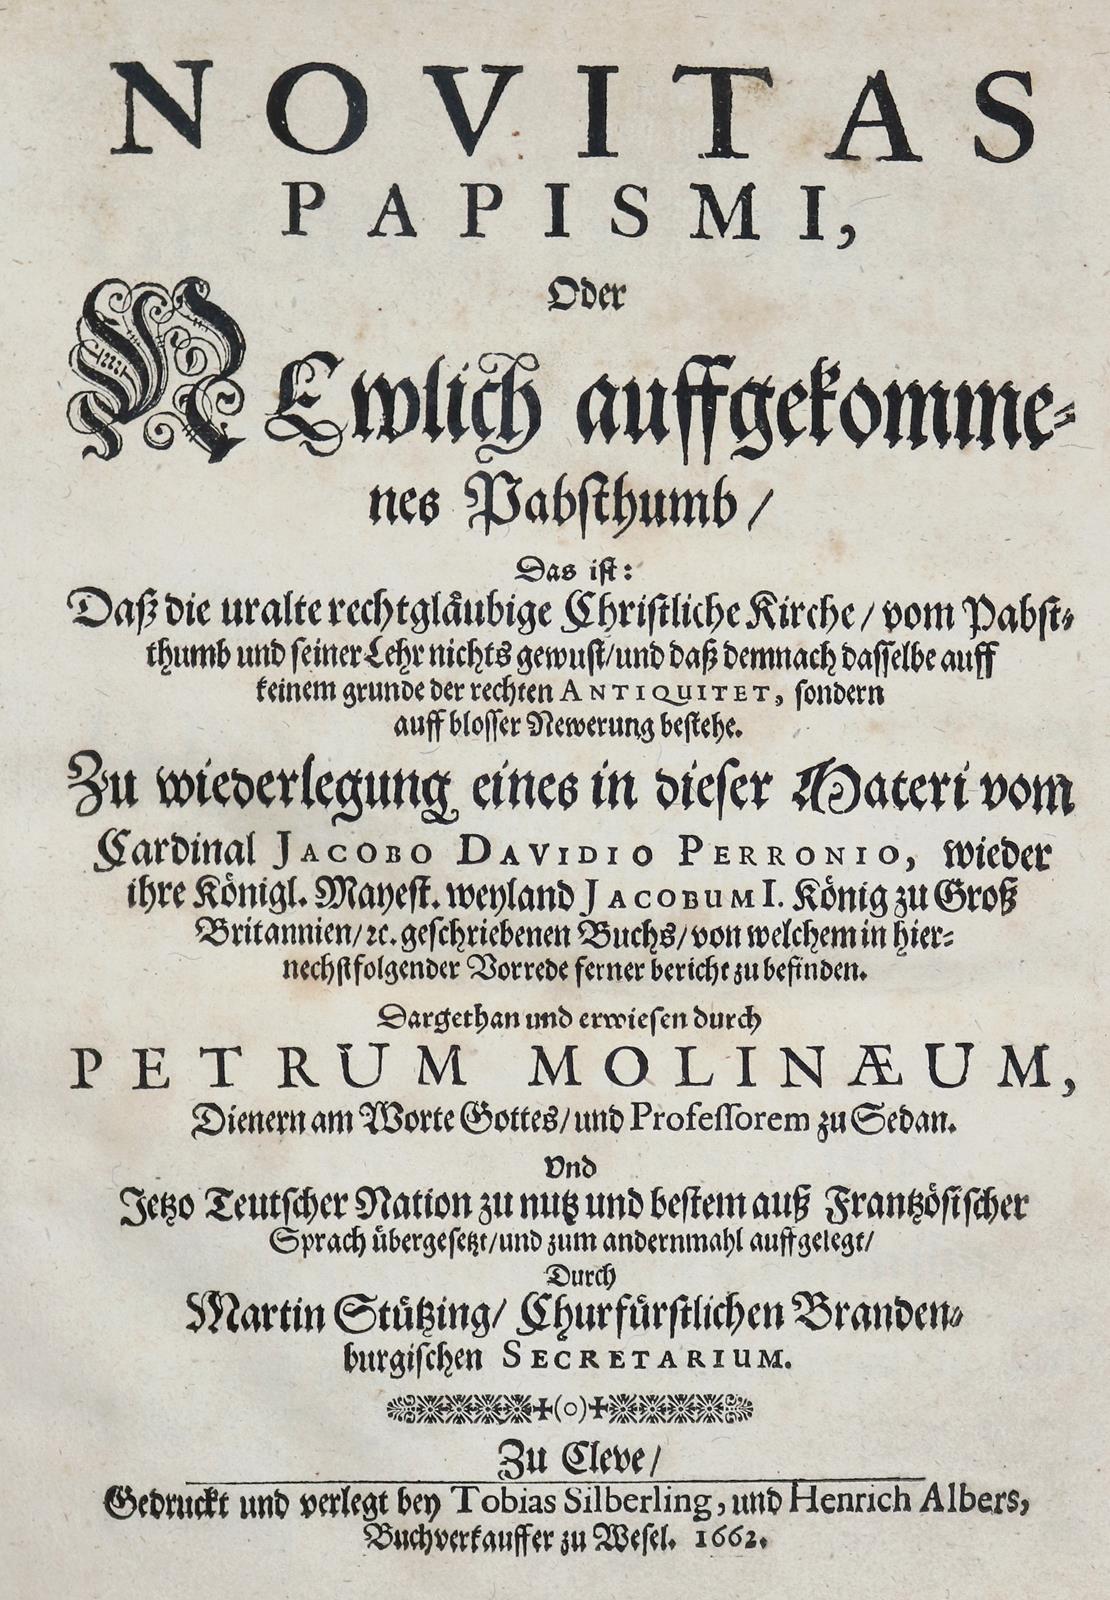 NOVITAS
PAPISMI,
Oder
NEwlich auffgekomme-
nes Pabsthumb /
Das ist:
Daß die uralte rechtglåubige Christliche Kirche / vom Pabst-
thumb und seiner Lehr nichts gewust / und daß demnach dasselbe auff
keinem grunde der rechten ANTIQUITET, sondern
auff blosser Newerung bestehe.
Zu wiederlegung eines in dieser Materi vom
Cardinal JACOBO DAVIDIO PERRONIO, wieder
ihre Königl. Mayest. weyland JACOBUM I. König zu Groß
Britannien / ꝛc. geschriebenen Buchs / von welchem in hier-
nechstfolgender Vorrede ferner bericht zu befinden.
Dargethan und erwiesen durch
PETRUM MOLINÆUM,
Dienern am Worte Gottes / und Professorem zu Sedan.
Vnd
Jetzo Teutscher Nation zu nutz und bestem auß Frantzösischer
Sprach übergesetzt / und zum andernmahl auffgelegt /
Durch
Martin Stützing / Churfürstlichen Branden-
burgischen SECRETARIUM.
(o)
Zu Cleve /
Gedruckt und verlegt bey Tobias Silberling, und Henrich Albers,
Buchverkauffer zu Wesel. 1662.